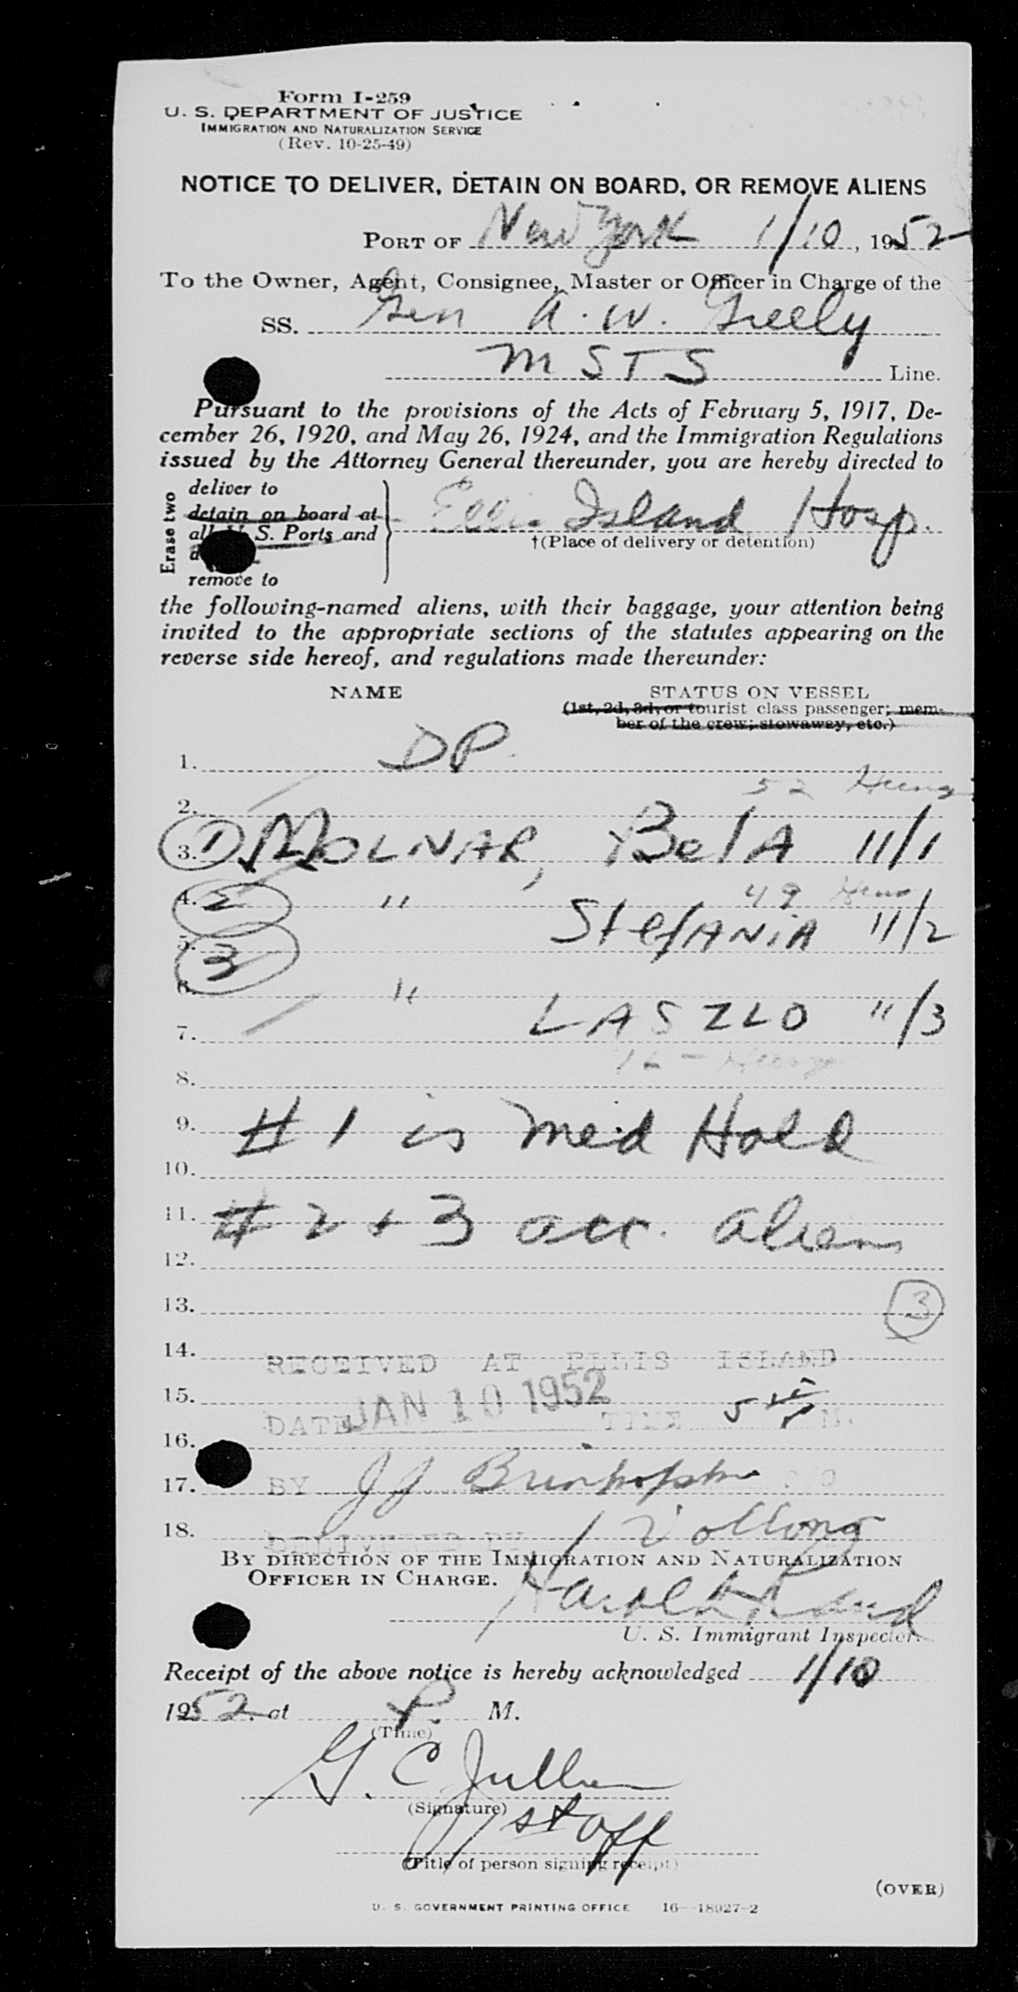 Form I-259
U. S. DEPARTMENT OF JUSTICE
IMMIGRATION AND NATURALIZATION SERVICE
(Rev. 10-25-49)
NOTICE TO DELIVER, DETAIN ON BOARD, OR REMOVE ALIENS
PORT OF New York 1/10, 1952
To the Owner, Agent, Consignee, Master or Officer in Charge of the
SS. Gen A. W. Greely
MSTS Line.
Pursuant to the provisions of the Acts of February 5, 1917, De-
cember 26, 1920, and May 26, 1924, and the Immigration Regulations
issued by the Attorney General thereunder, you are hereby directed to
Erase two
deliver to
detain on board at
all U. S. Ports and
remove to
Ellis Island Hosp.
†(Place of delivery or detention)
the following-named aliens, with their baggage, your attention being
invited to the appropriate sections of the statutes appearing on the
reverse side hereof, and regulations made thereunder:
NAME STATUS ON VESSEL
(1st, 2d, 3d, or tourist class passenger; mem-
ber of the crew; stowaway, etc.)
1. DP
2. 52 Hung
3. 1 MOLNAR, BelA 11/1
4. 2 49
5. " StefANiA 11/2
3
6.
7. " LASZLO "/3
8.
9. # 1 is med Hold
10.
11. # 2 + 3 acc. aliens
12.
13. 3
14. RECEIVED AT ELLIS ISLAND
15. DATE JAN 10 1952 TIME 5 M.
16.
17. BY JJ
18. DELIVERED BY
BY DIRECTION OF THE IMMIGRATION AND NATURALIZATION
OFFICER IN CHARGE.
Harold
U. S. Immigrant Inspector.
Receipt of the above notice is hereby acknowledged 1/10
1952, at P. M.
(Time)
G. C. Jullien
(Signature)
staff
(Title of person signing receipt)
(OVER)
U. S. GOVERNMENT PRINTING OFFICE 16—18027-2